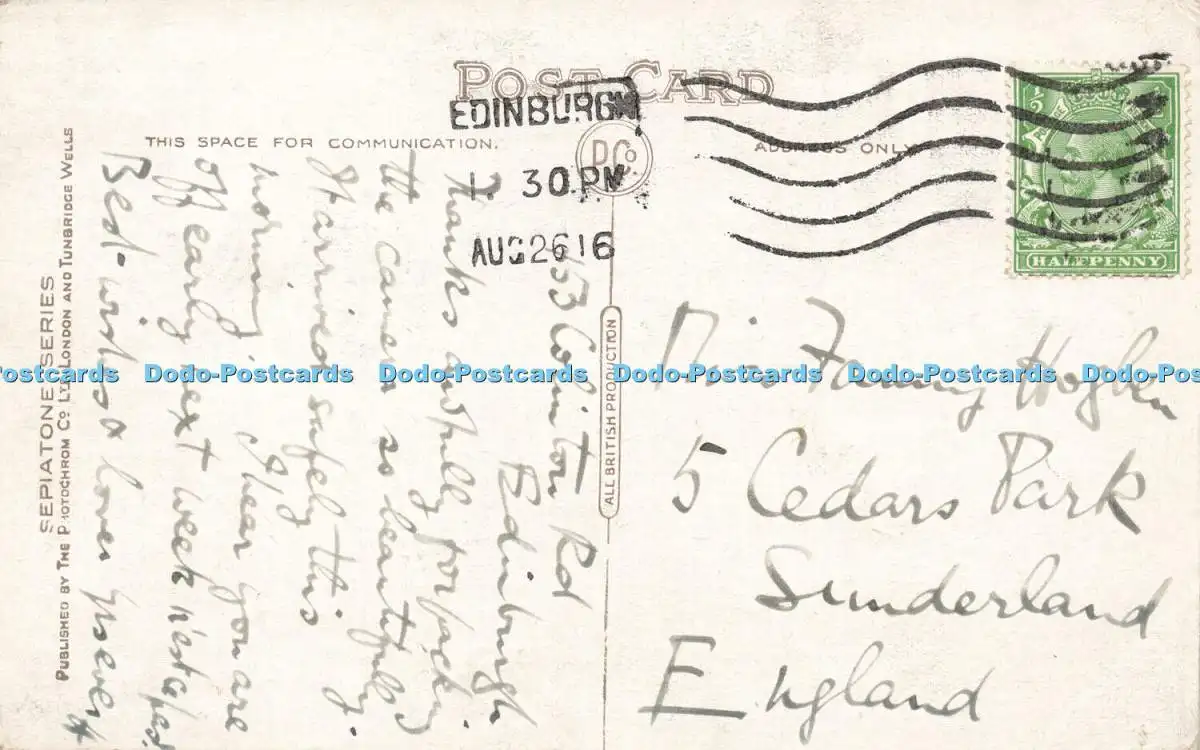 POST CARD
EDINBURGH
1 30 PM
AUG 26 16
THIS SPACE FOR COMMUNICATION.
ADDRESS ONLY
P Co
HALFPENNY
SEPIATONE SERIES
PUBLISHED BY THE PHOTOCHROM CO LTD LONDON AND TUNBRIDGE WELLS
ALL BRITISH PRODUCTION
53 Colinton Rd
Edinburgh
Thanks awfully for packing
the camera so beautifully.
It arrived safely this
morning. I hear you are
off early next week
Best wishes & love
Miss Fanny Hogben
5 Cedars Park
Sunderland
England
Dodo-Postcards Dodo-Postcards Dodo-Postcards Dodo-Postcards Dodo-Postcards Dodo-Postcards